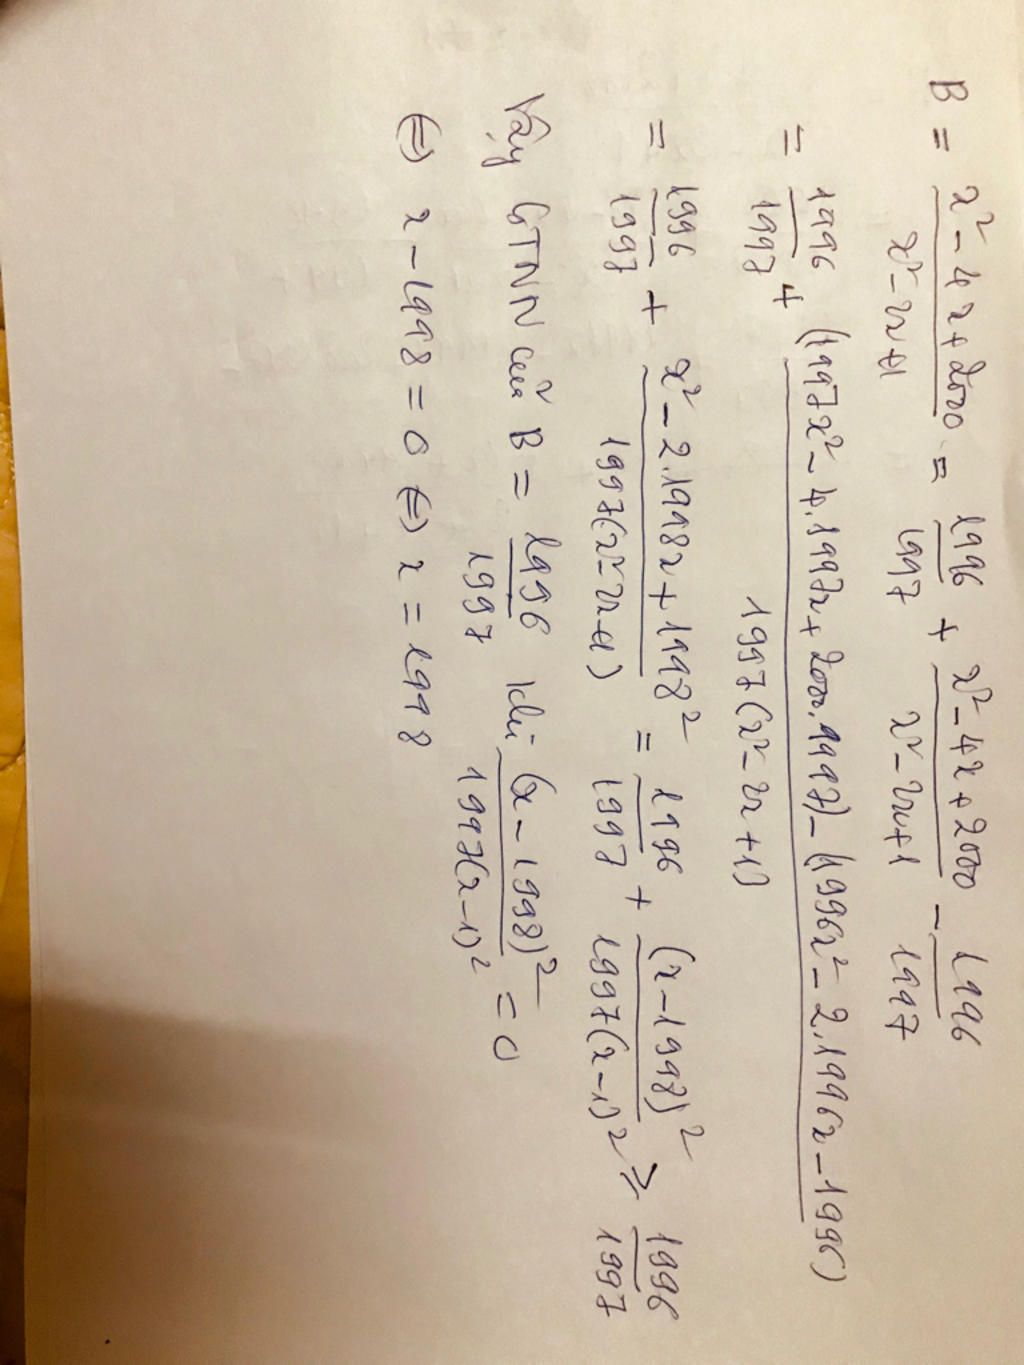 B = (x² - 4x + 2000)/(x² - 2x + 1) = 1996/1997 + (x² - 4x + 2000)/(x² - 2x + 1) - 1996/1997
= 1996/1997 + ((1997x² - 4.1997x + 2000.1997) - (1996x² - 2.1996x - 1996))/(1997(x² - 2x + 1))
= 1996/1997 + (x² - 2.1998x + 1998²)/(1997(x² - 2x + 1)) = 1996/1997 + (x - 1998)²/(1997(x - 1)²) ≥ 1996/1997
Vậy GTNN của B = 1996/1997 khi (x - 1998)²/(1997(x - 1)²) = 0
⇔ x - 1998 = 0 ⇔ x = 1998